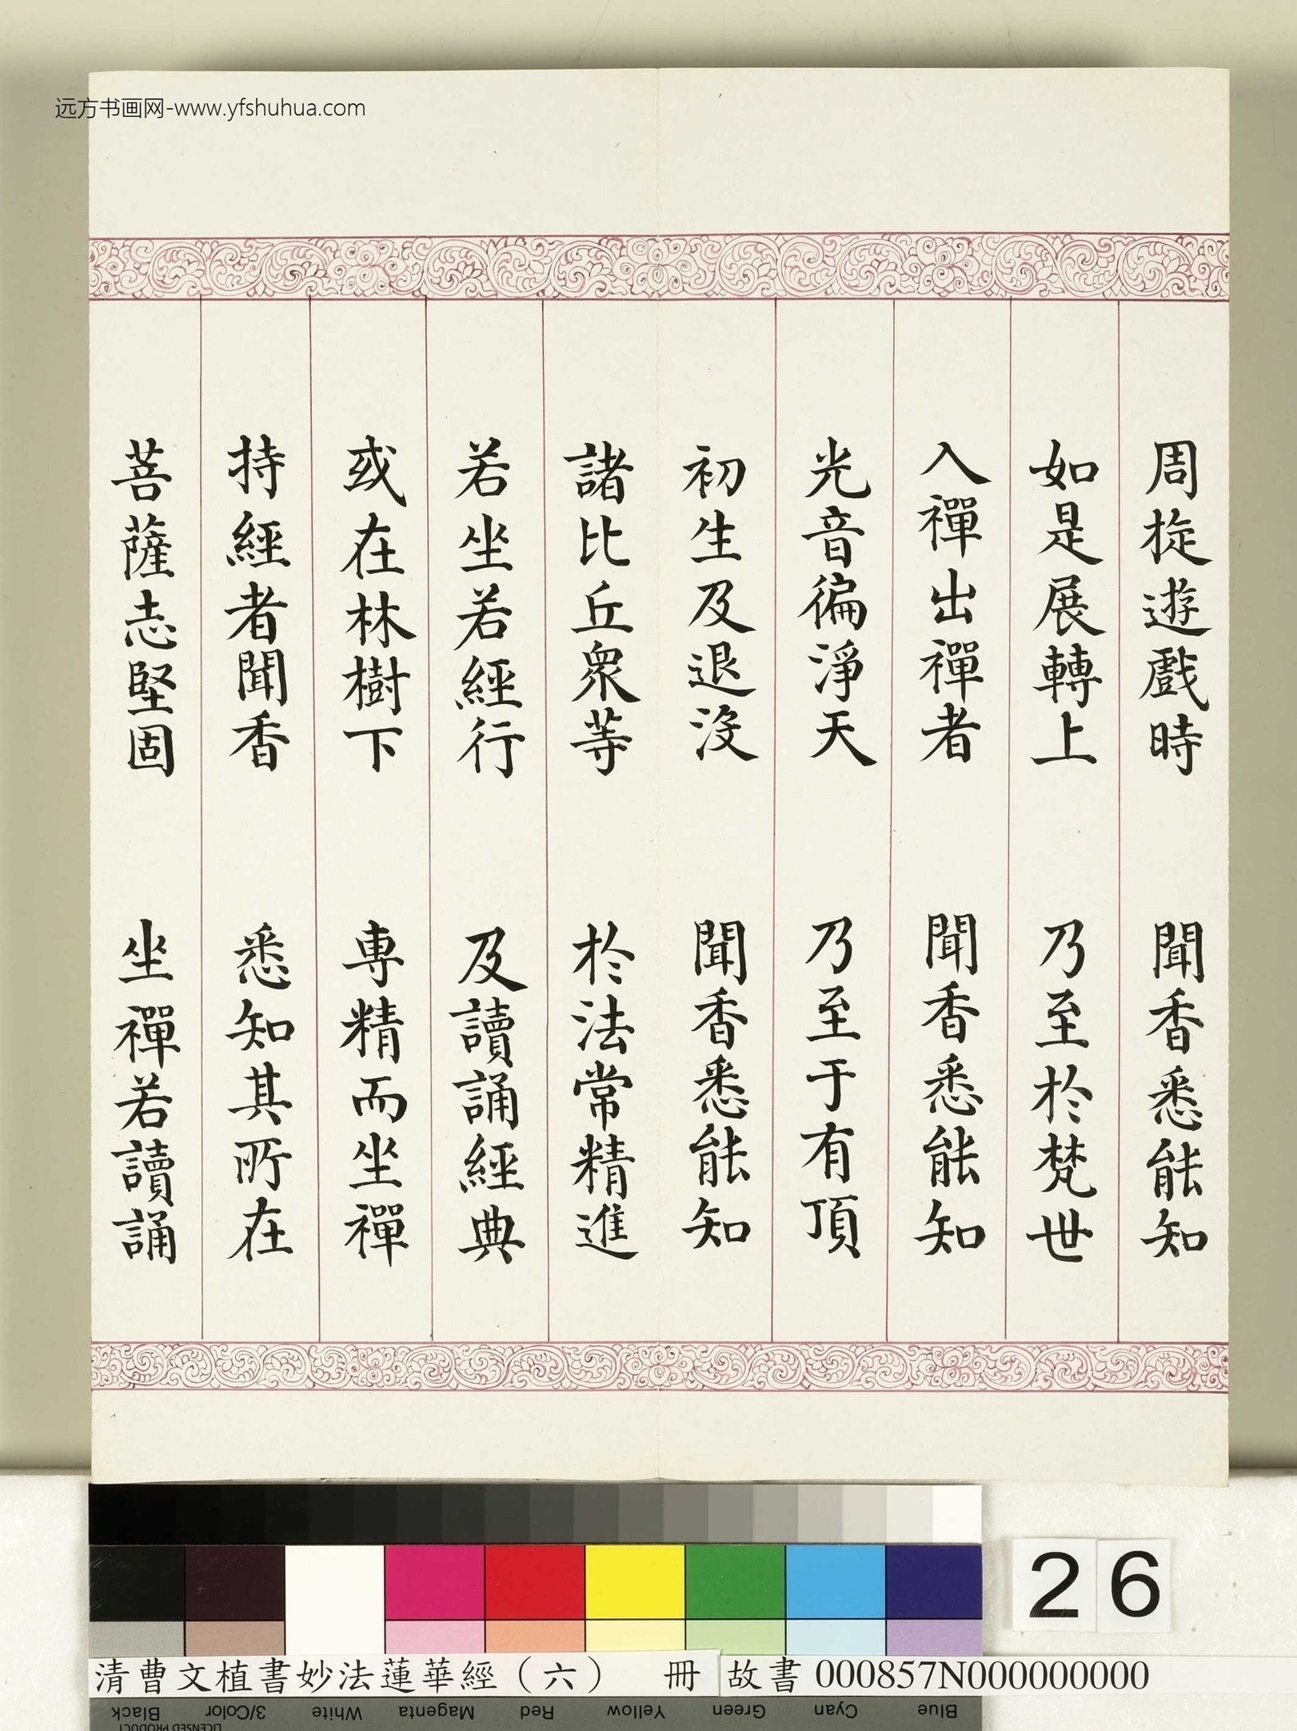 远方书画网-www.yfshuhua.com
周旋遊戲時 聞香悉能知
如是展轉上 乃至於梵世
入禪出禪者 聞香悉能知
光音徧淨天 乃至于有頂
初生及退沒 聞香悉能知
諸比丘衆等 於法常精進
若坐若經行 及讀誦經典
或在林樹下 專精而坐禪
持經者聞香 悉知其所在
菩薩志堅固 坐禪若讀誦
26
清曹文植書妙法蓮華經（六） 冊 故書 000857N000000000
Black 3/Color White Magenta Red Yellow Green Cyan Blue
LICENSED PRODUCT